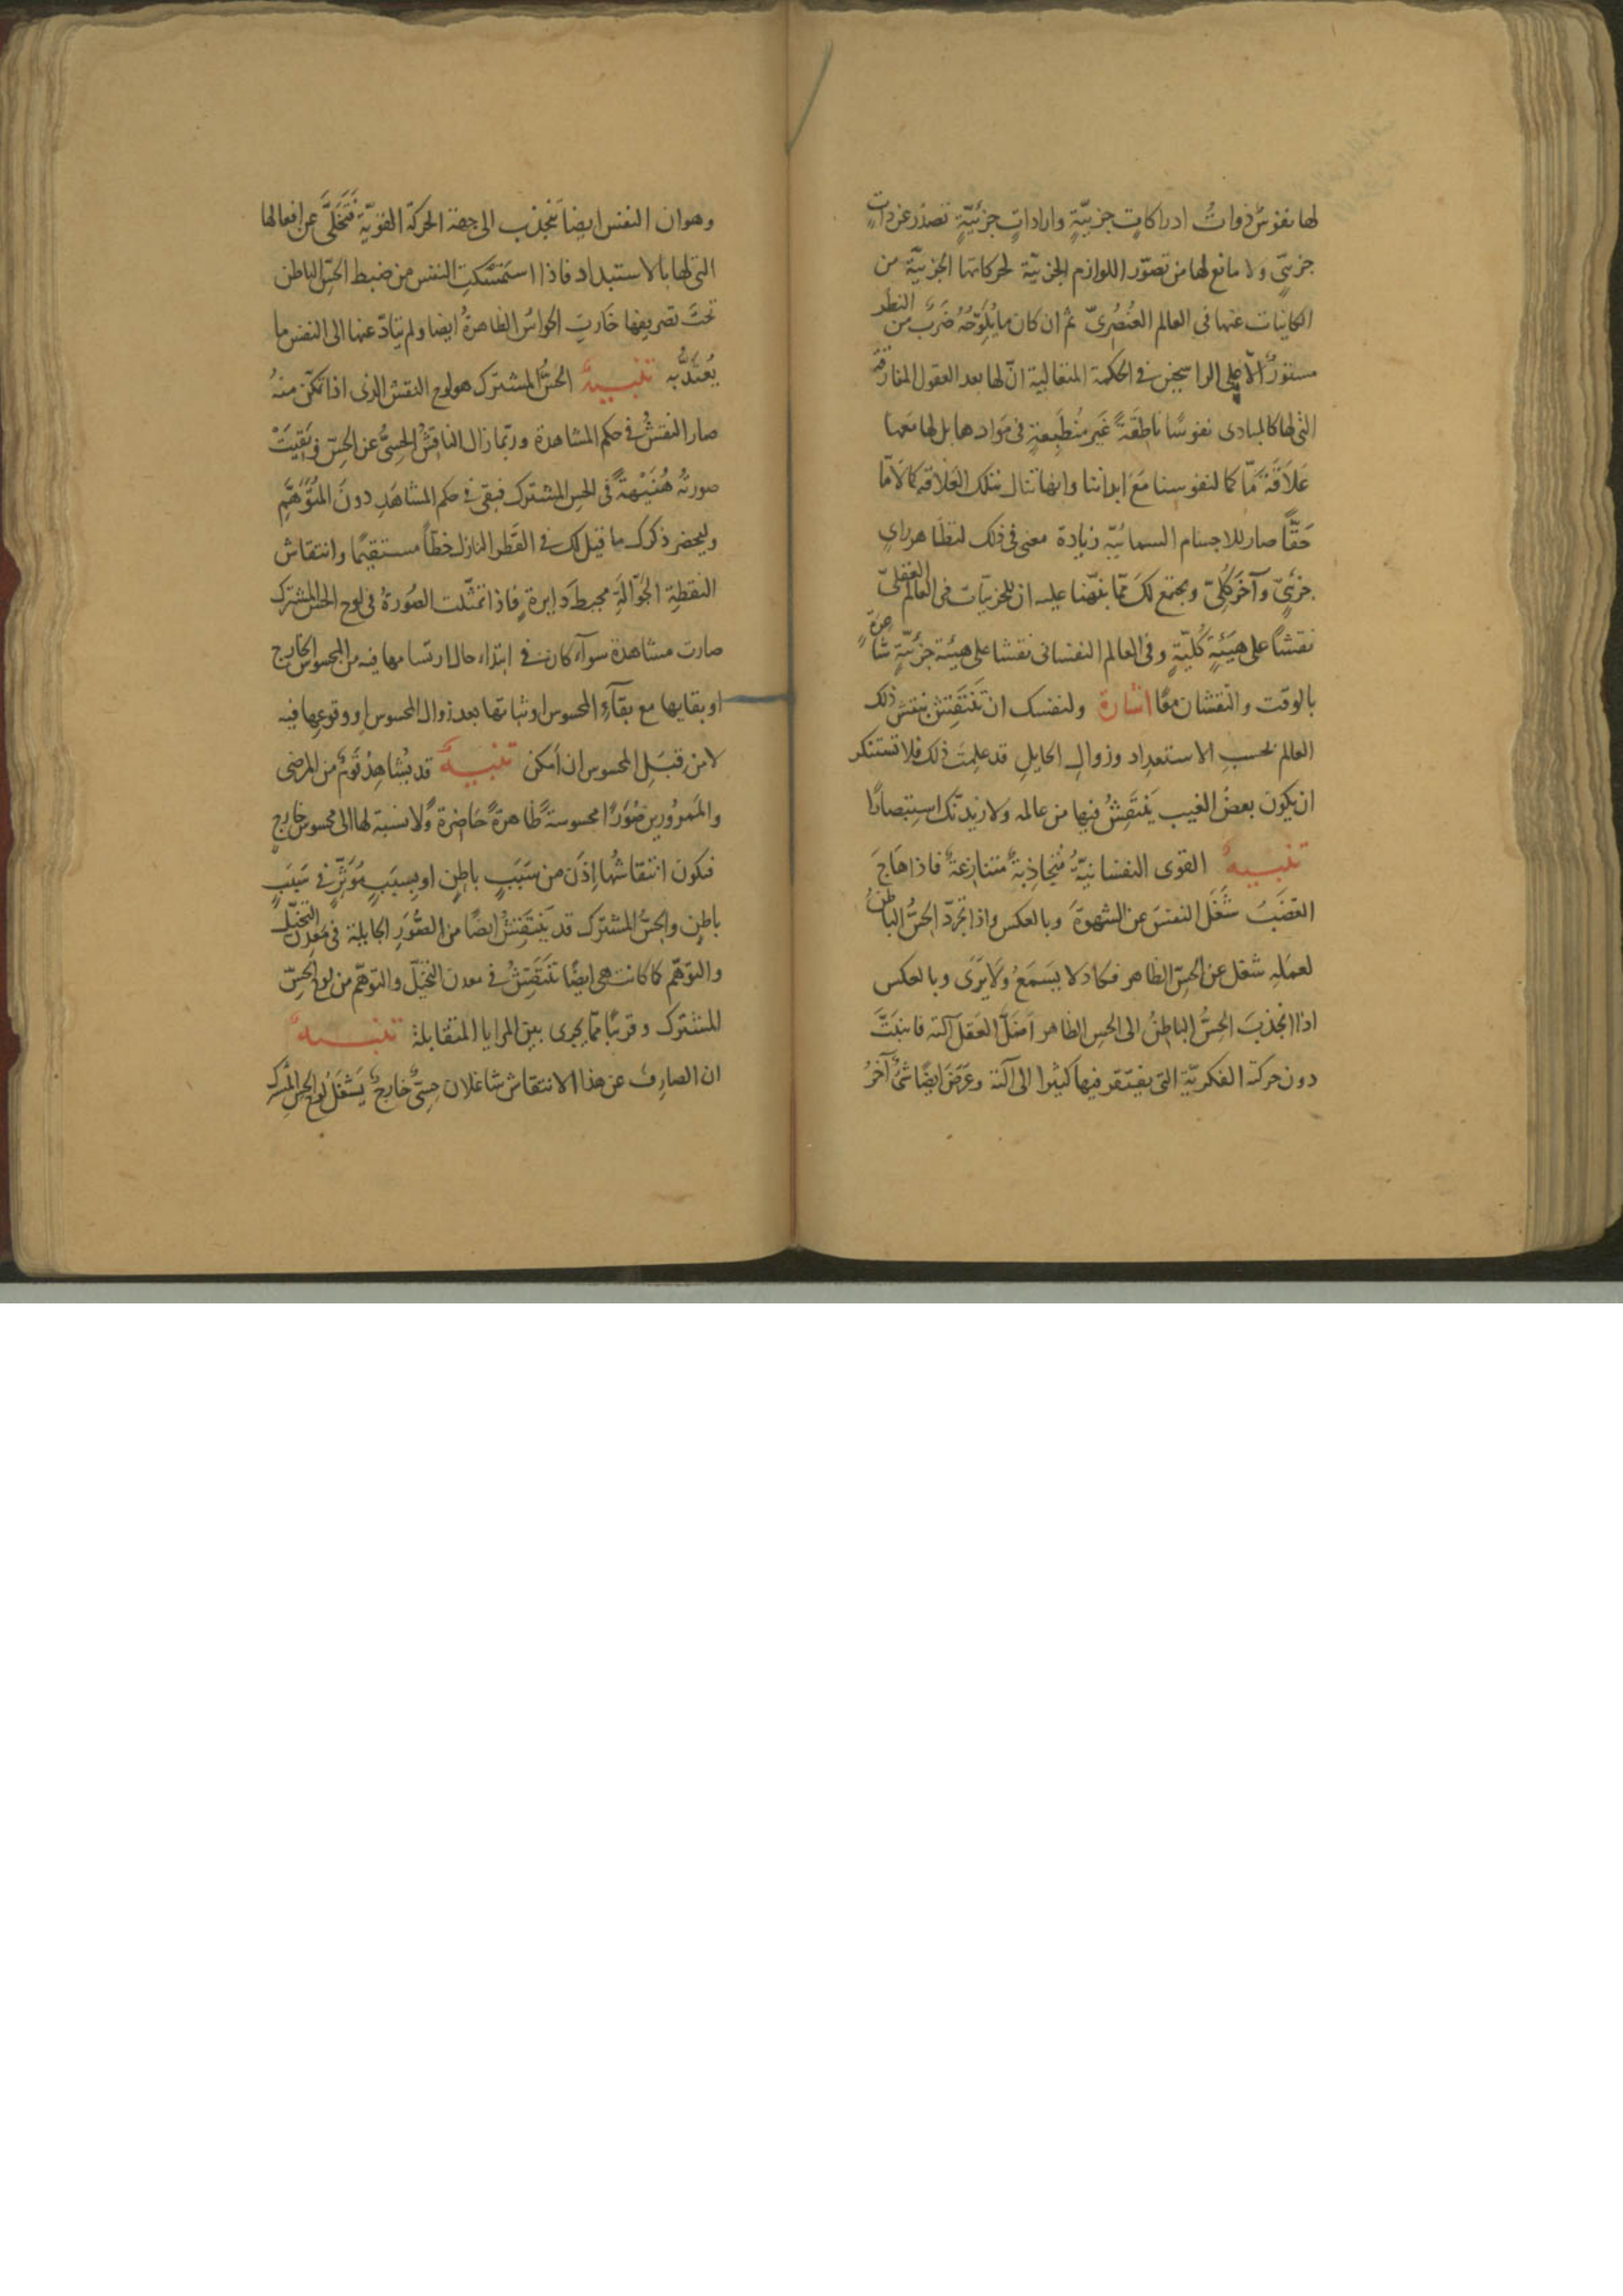 لها نفوسٌ ذواتُ ادراكاتٍ جزئيّةٍ واراداتٍ جزئيّةٍ تصدر عن رايٍ
جزئيٍّ ولا مانع لها من تصوّر اللوازم الجزئيّة لحركاتها الجزئيّة من
الكاينات عنها في العالم العُنصُريّ ثم ان كان ما يُلوّحُهُ ضَربٌ من النظر
مستورًا الّا على الراسخين في الحكمة المتعالية انّ لها بعد العقول المفارقة
التي لها كالمبادى نفوسًا ناطقةً غَير مُنطَبِعةٍ في مَوادها بل لها معها
عَلاقَةٌ مّا كما لنفوسنا مَعَ ابداننا وانها تنال بتلك العَلاقة كمالًا مّا
حَقًّا صار للاجسام السمائيّة زيادة معنى في ذلك لتظاهر رايٍ
جزئيٍّ وآخَر كلّيٍّ ويجتمع لكَ ممّا نبّهنا عليه ان للجزئيّات في العالم العقليّ
نقشًا على هَيئةٍ كُلّيّةٍ وفي العالم النفسانى نقشا على هيئة جزئيّةٍ شاعرةٍ
بالوقت والنقشان معًا اشارة ولنفسك ان تَنتَقِش بنقش ذلك
العالم بحسبِ الاستعداد وزوالِ الحايلِ قد علِمتَ ذلك فلا تستنكر
ان يكون بعضُ الغيب يَنتَقِشُ فيها من عالمه ولازيدنّك استبصارًا
تنبيهٌ القوى النفسانيّةُ مُتجاذِبةٌ متنازِعةٌ فاذا هَاجَ
الغضَبُ شَغَلَ النفسَ عن الشهوةَ وبالعكس واذا تجرّد الحسُّ الباطنُ
لعمَلِه شغل عن الحسّ الظاهر فكاد لا يَسمَعُ ولا يَرَى وبالعكس
اذا انجذبَ الحِسُّ الباطنُ الى الحس الظاهر اَضَلَّ العقل آلته فانبَتَّ
دون حركته الفكريّة التي يفتقر فيها كثيرا الى آلته وعَرَضَ ايضًا شَئٌ آخَرُ
وهو ان النفس ايضًا تنجذب الى جهة الحركة القويّةِ فَتَتخلّى عن افعالها
التي لها بالاستبداد فاذا استَمسَكتِ النفس من ضبط الحسّ الباطن
تحتَ تصريفها خَارتِ الحواسُّ الظاهرةُ ايضا ولم يتادّ عنها الى النفس ما
يُعتدُّ به تنبيهٌ الحسُّ المشترك هو لوح النقش الذى اذا تمكّن منهُ
صار النقشُ في حكم المشاهدة وربّما زال الناقشُ الحِسّىُّ عن الحسّ وبقيَتْ
صورتُهُ هُنَيْهةً في الحس المشترك فبقى في حكم المشاهَدِ دونَ المتوَهَّمِ
وليحضر ذكرك ما قيل لك في القَطر النازل خطًّا مستقيمًا وانتقاش
النقطةِ الجوّالةِ محيطَ دَايرةٍ فاذا تمثّلت الصُورةُ في لوح الحس المشترك
صارت مشاهدة سوآء كان في ابتداء حال ارتسامها فيه من المحسوس الخارج
او بقايها مع بقآءِ المحسوس او ثباتها بعد زوال المحسوس او وقوعها فيه
لا من قبَلِ المحسوس ان اَمكن تنبيهٌ قد يُشاهِدُ قَومٌ من المرضى
والمَمرُورين صُوَرًا محسوسةً ظاهرةً حَاضرةً ولا نسبة لها الى محسوس خارجٍ
فيكون انتقاشُها اِذَن من سَبَبٍ باطنٍ او بِسبَبٍ مُؤثّرٍ في سَبَبٍ
باطنٍ والحسُّ المشترك قد يَنتَقِشُ ايضًا من الصُّوَرِ الجايلة في مَعدن التخيّل
والتوهّم كما كانت هى ايضًا تَنتَقِشُ في معدن التخيّل والتوهّم من لوح الحسّ
المشترك وقريبًا ممّا يجرى بين المرايا المتقابلة تنبيهٌ
ان الصارِف عن هذا الانتقاش شاغلان حِسّىٌّ خارجٌ يَشغَلُ لوح الحسّ المشترك